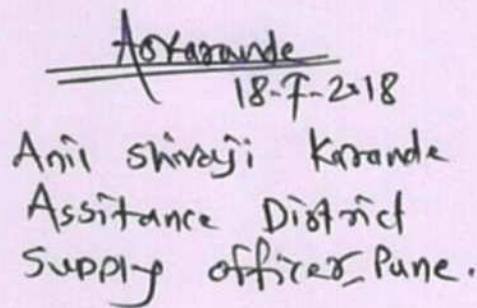 ASKarande
18-7-2018
Anil Shivaji Karande
Assitance District
Supply officer, Pune.